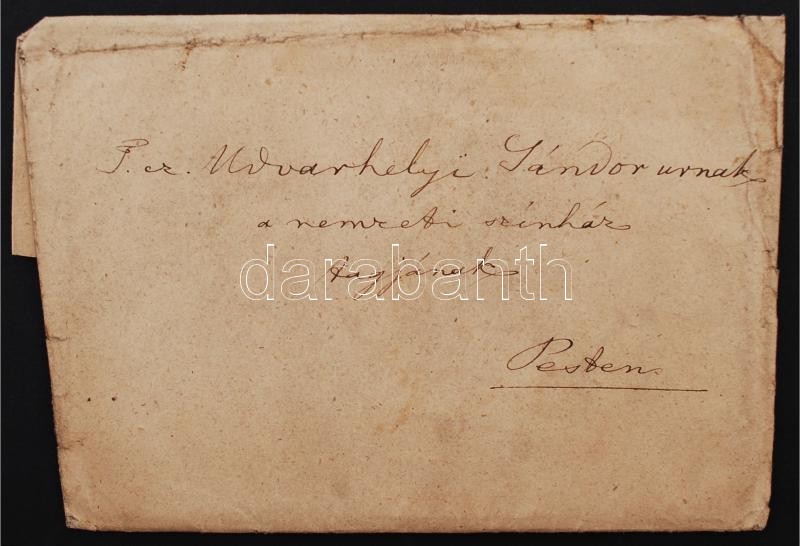 T. cz. Udvarhelyi Sándor urnak
a nemzeti szinház
tagjának
darabanth
Pesten